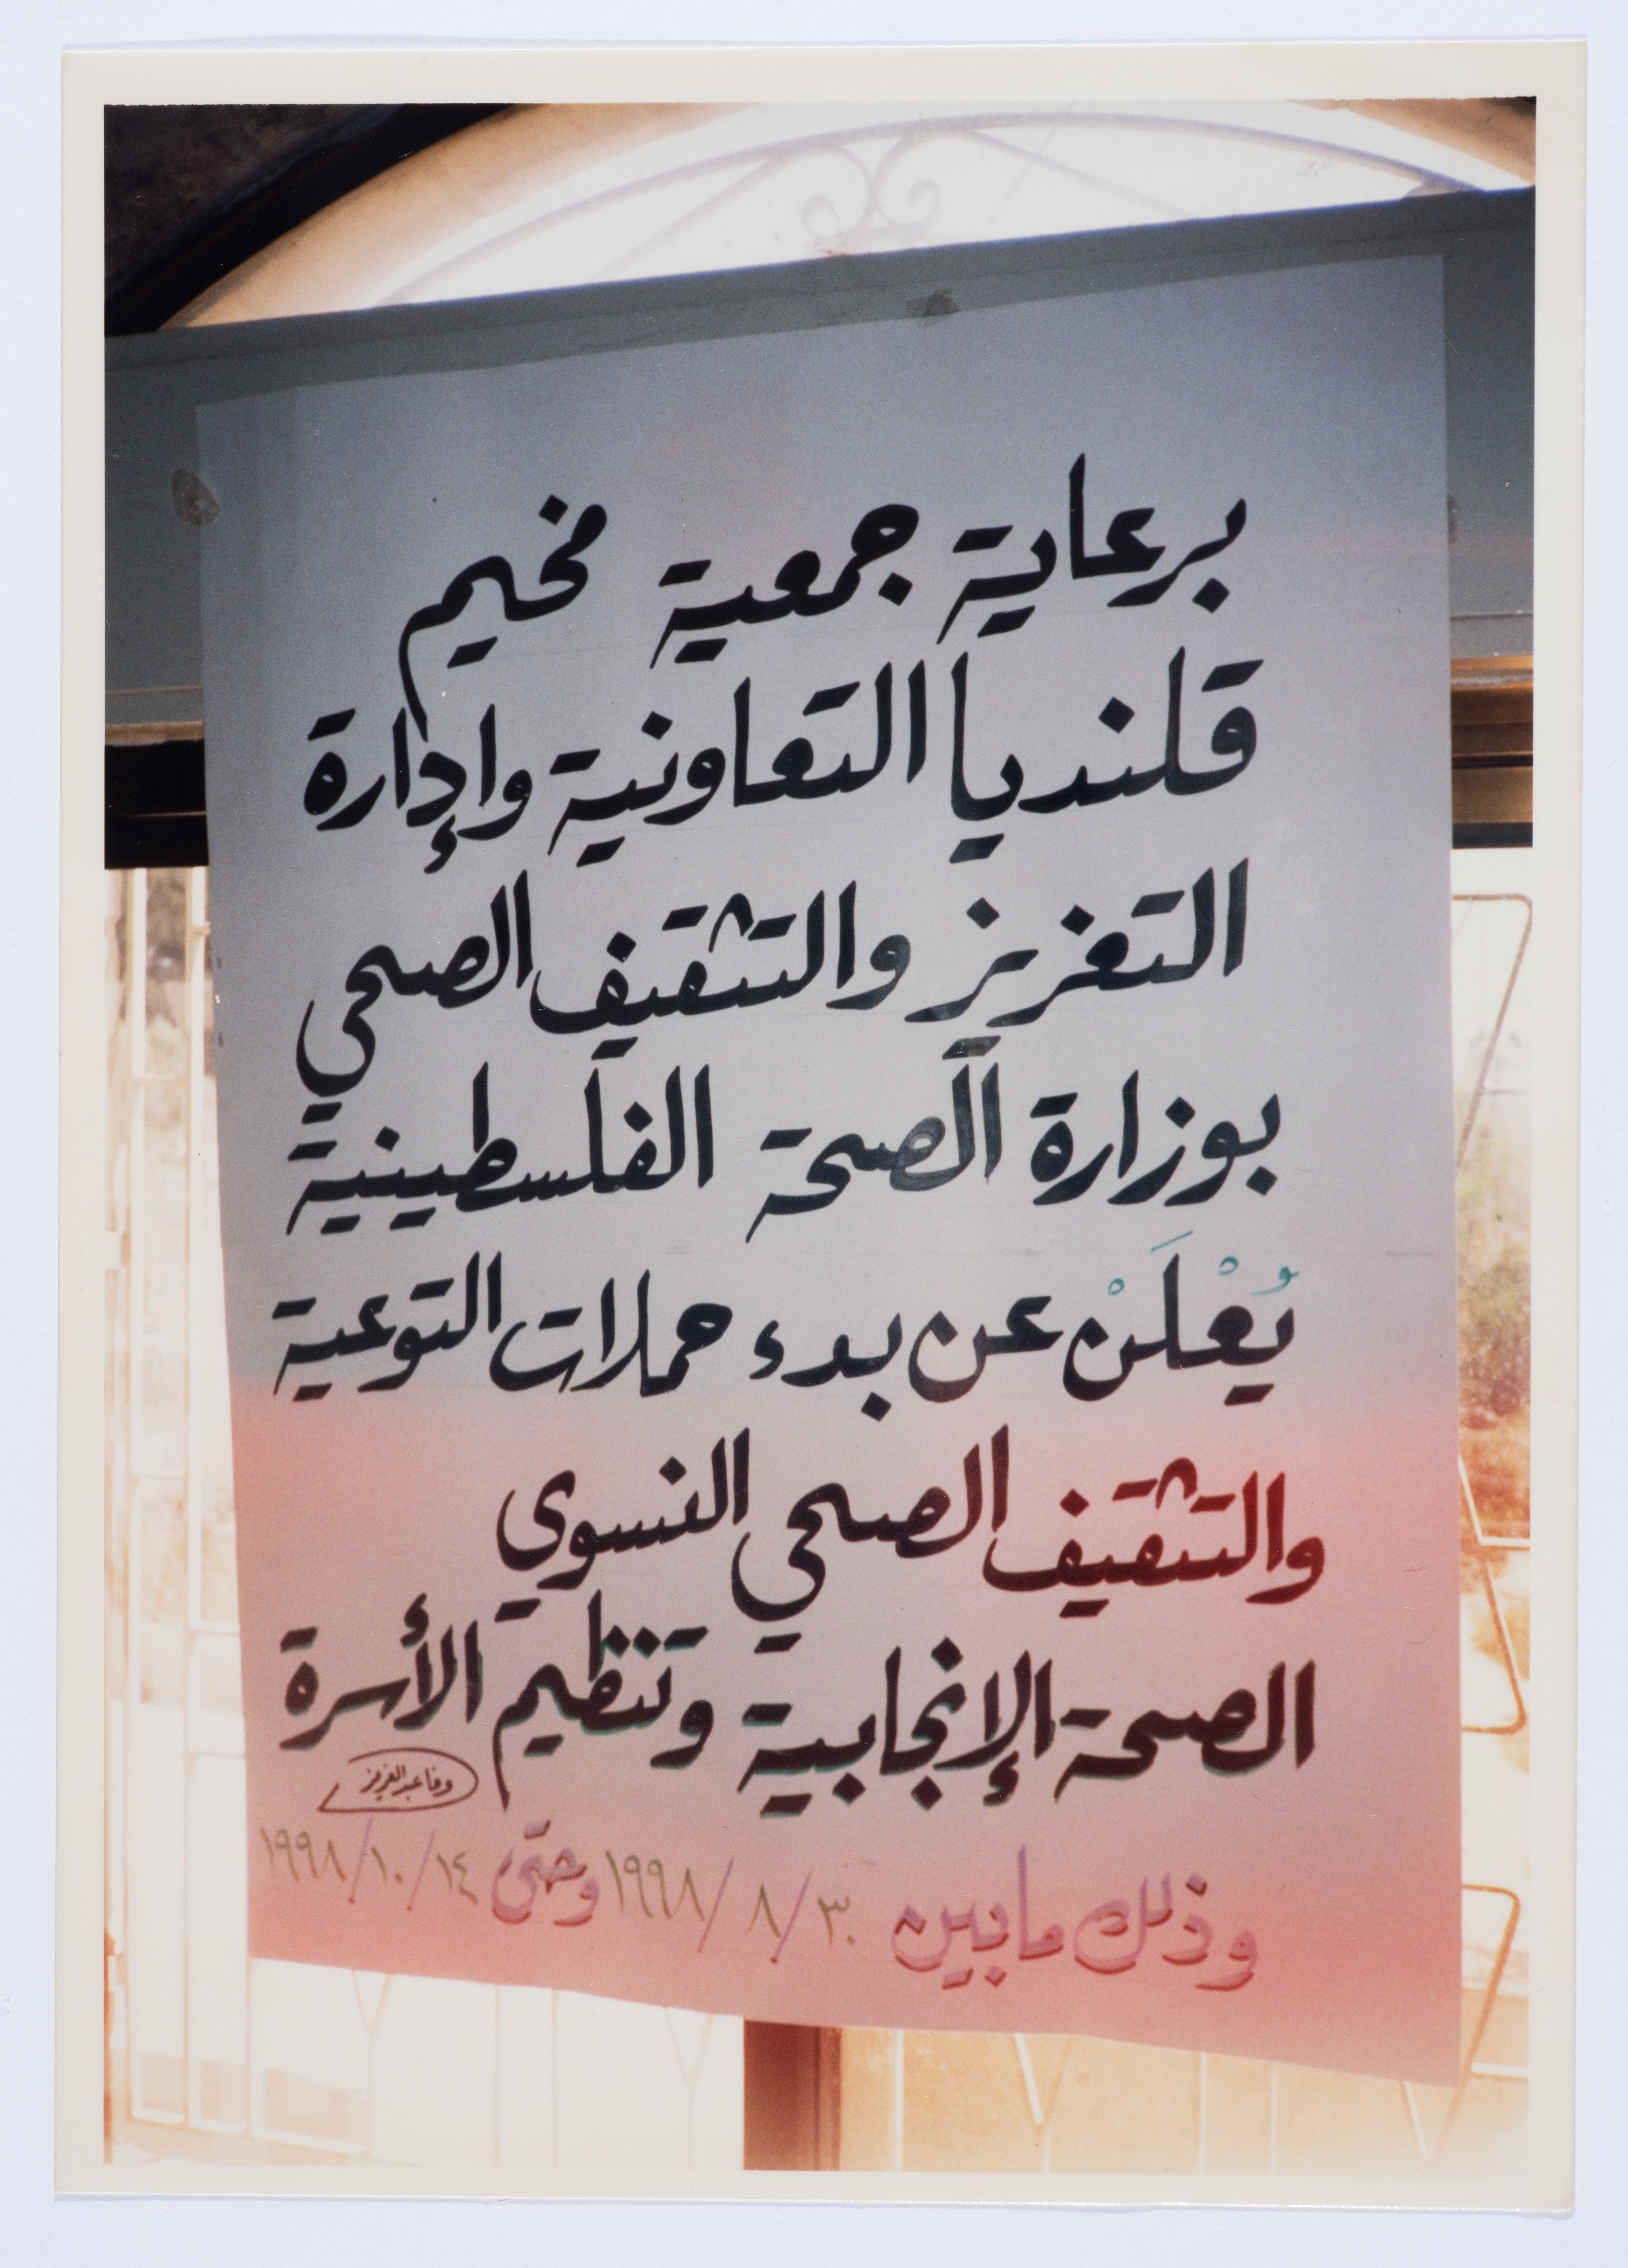 برعاية جمعية مخيم
قلنديا التعاونية وإدارة
التعزيز والتثقيف الصحي
بوزارة الصحة الفلسطينية
يُعْلَنْ عن بدء حملات التوعية
والتثقيف الصحي النسوي
الصحة الإنجابية وتنظيم الأسرة
وفا عبد العزيز
وذلك ما بين ٣٠/٨/١٩٩٨ وحتى ١٤/١٠/١٩٩٨